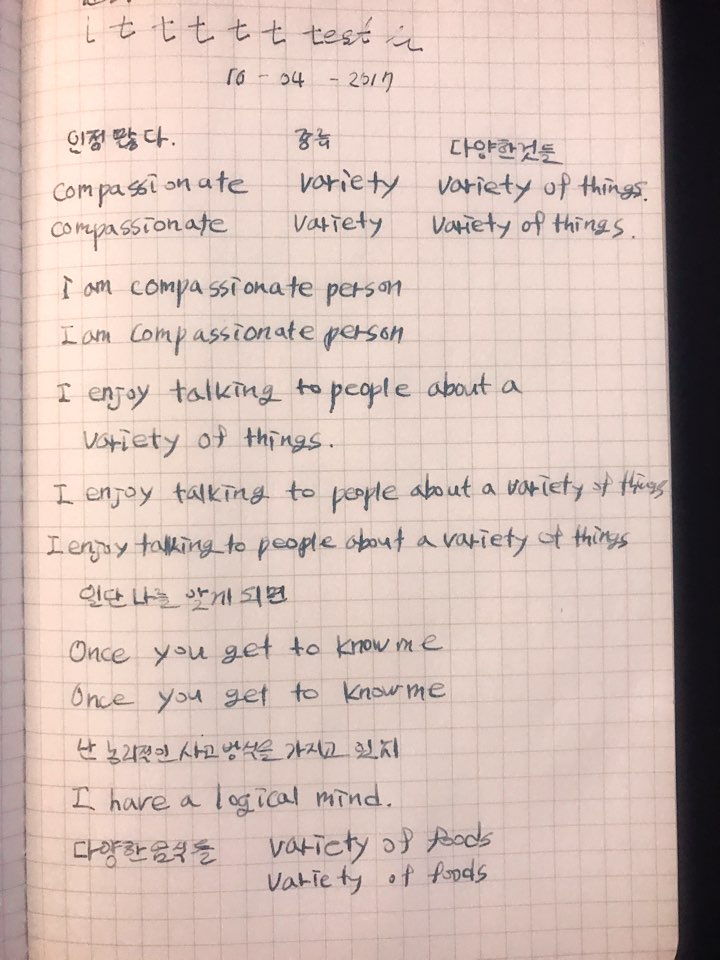 i t t t t t test i
10 - 04 - 2017
인정 많다. 종류 다양한것들
compassionate variety variety of things.
compassionate variety variety of things.
I am compassionate person
I am compassionate person
I enjoy talking to people about a
variety of things.
I enjoy talking to people about a variety of things
I enjoy talking to people about a variety of things
일단 나를 알게 되면
Once you get to know me
Once you get to know me
난 논리적인 사고방식을 가지고 있지
I have a logical mind.
다양한음식들 variety of foods
variety of foods